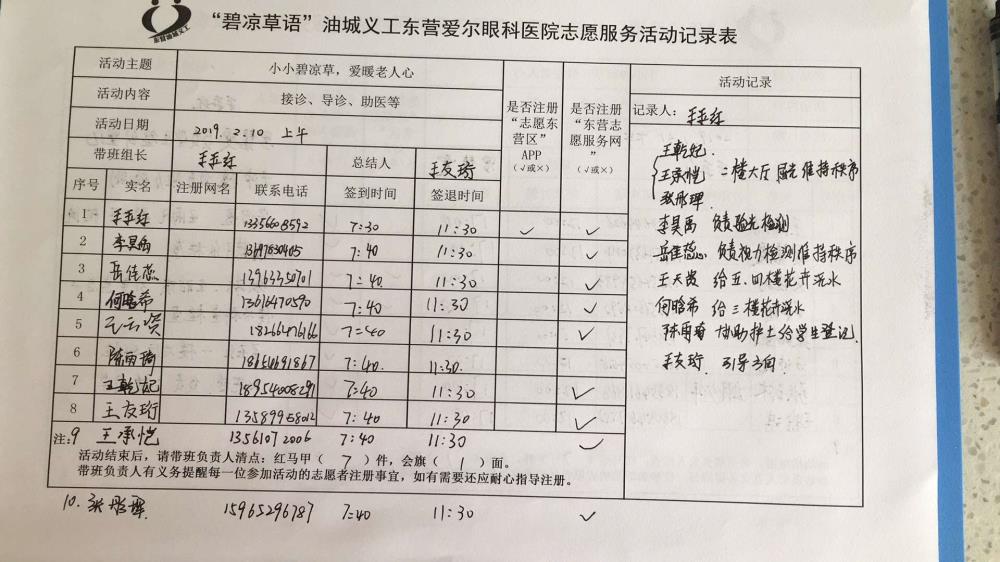 “碧凉草语”油城义工东营爱尔眼科医院志愿服务活动记录表
活动主题 小小碧凉草，爱暖老人心
活动内容 接诊、导诊、助医等
活动日期 2019.2.10 上午
带班组长 总结人 王友珩
序号 实名 注册网名 联系电话 签到时间 签退时间
是否注册“志愿东营区”APP（√或×）
是否注册“东营志愿服务网”（√或×）
1 13356608592 7:30 11:30 √ √
2 李昊雨 13697630405 7:40 11:30 √
3 岳佳蕊 7:40 11:30 √
4 何晗希 13616470590 7:40 11:30 √
5 7:40 11:30 √
6 陈雨琦 18650691867 7:40 11:30
7 王乾妃 18954008291 7:40 11:30 √
8 王友珩 13589958012 7:40 11:30 √
注：9 王承恺 13561072006 7:40 11:30 √
活动结束后，请带班负责人清点：红马甲（ 7 ）件，会旗（ 1 ）面。
带班负责人有义务提醒每一位参加活动的志愿者注册事宜，如有需要还应耐心指导注册。
10. 15965296787 7:40 11:30 √
活动记录
记录人：
王乾妃
王承恺 二楼大厅 维持秩序
李昊雨 负责验光检测
岳佳蕊 负责视力检测维持秩序
王天资 给五、四楼花卉浇水
何晗希 给三楼花卉浇水
陈雨琦 协助护士给学生登记
王友珩 引导方向